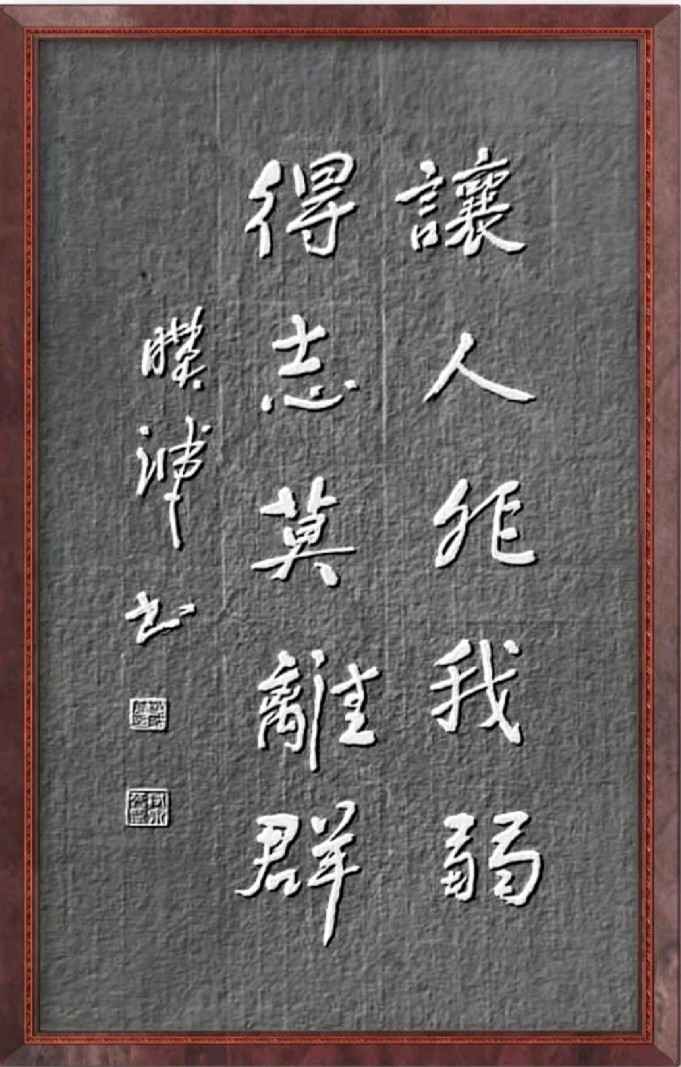 讓人非我弱
得志莫離群
書